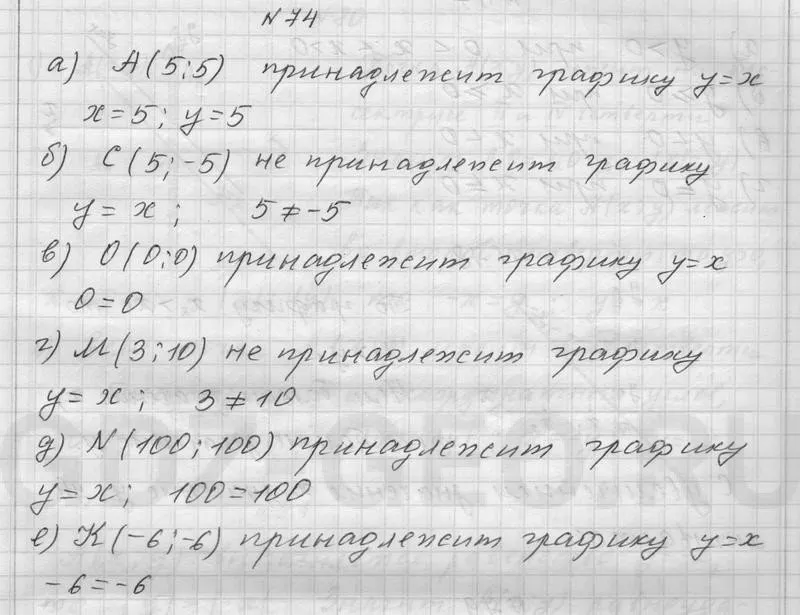 № 74
а) А(5;5) принадлежит графику y=x
x=5; y=5
б) С(5;-5) не принадлежит графику
y=x; 5≠-5
в) О(0;0) принадлежит графику y=x
0=0
г) М(3;10) не принадлежит графику
y=x; 3≠10
д) N(100;100) принадлежит графику
y=x; 100=100
е) К(-6;-6) принадлежит графику y=x
-6=-6